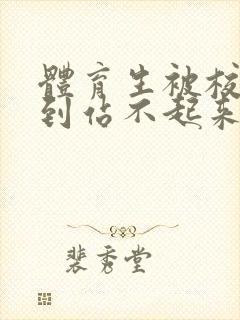 體育生被校
到佔不起来
裴秀堂